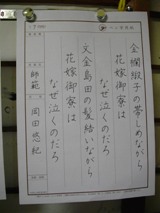 金襴緞子の帯しめながら
花嫁御寮は
なぜ泣くのだろ
文金島田の髪結いながら
花嫁御寮は
なぜ泣くのだろ
師範
岡田悠紀